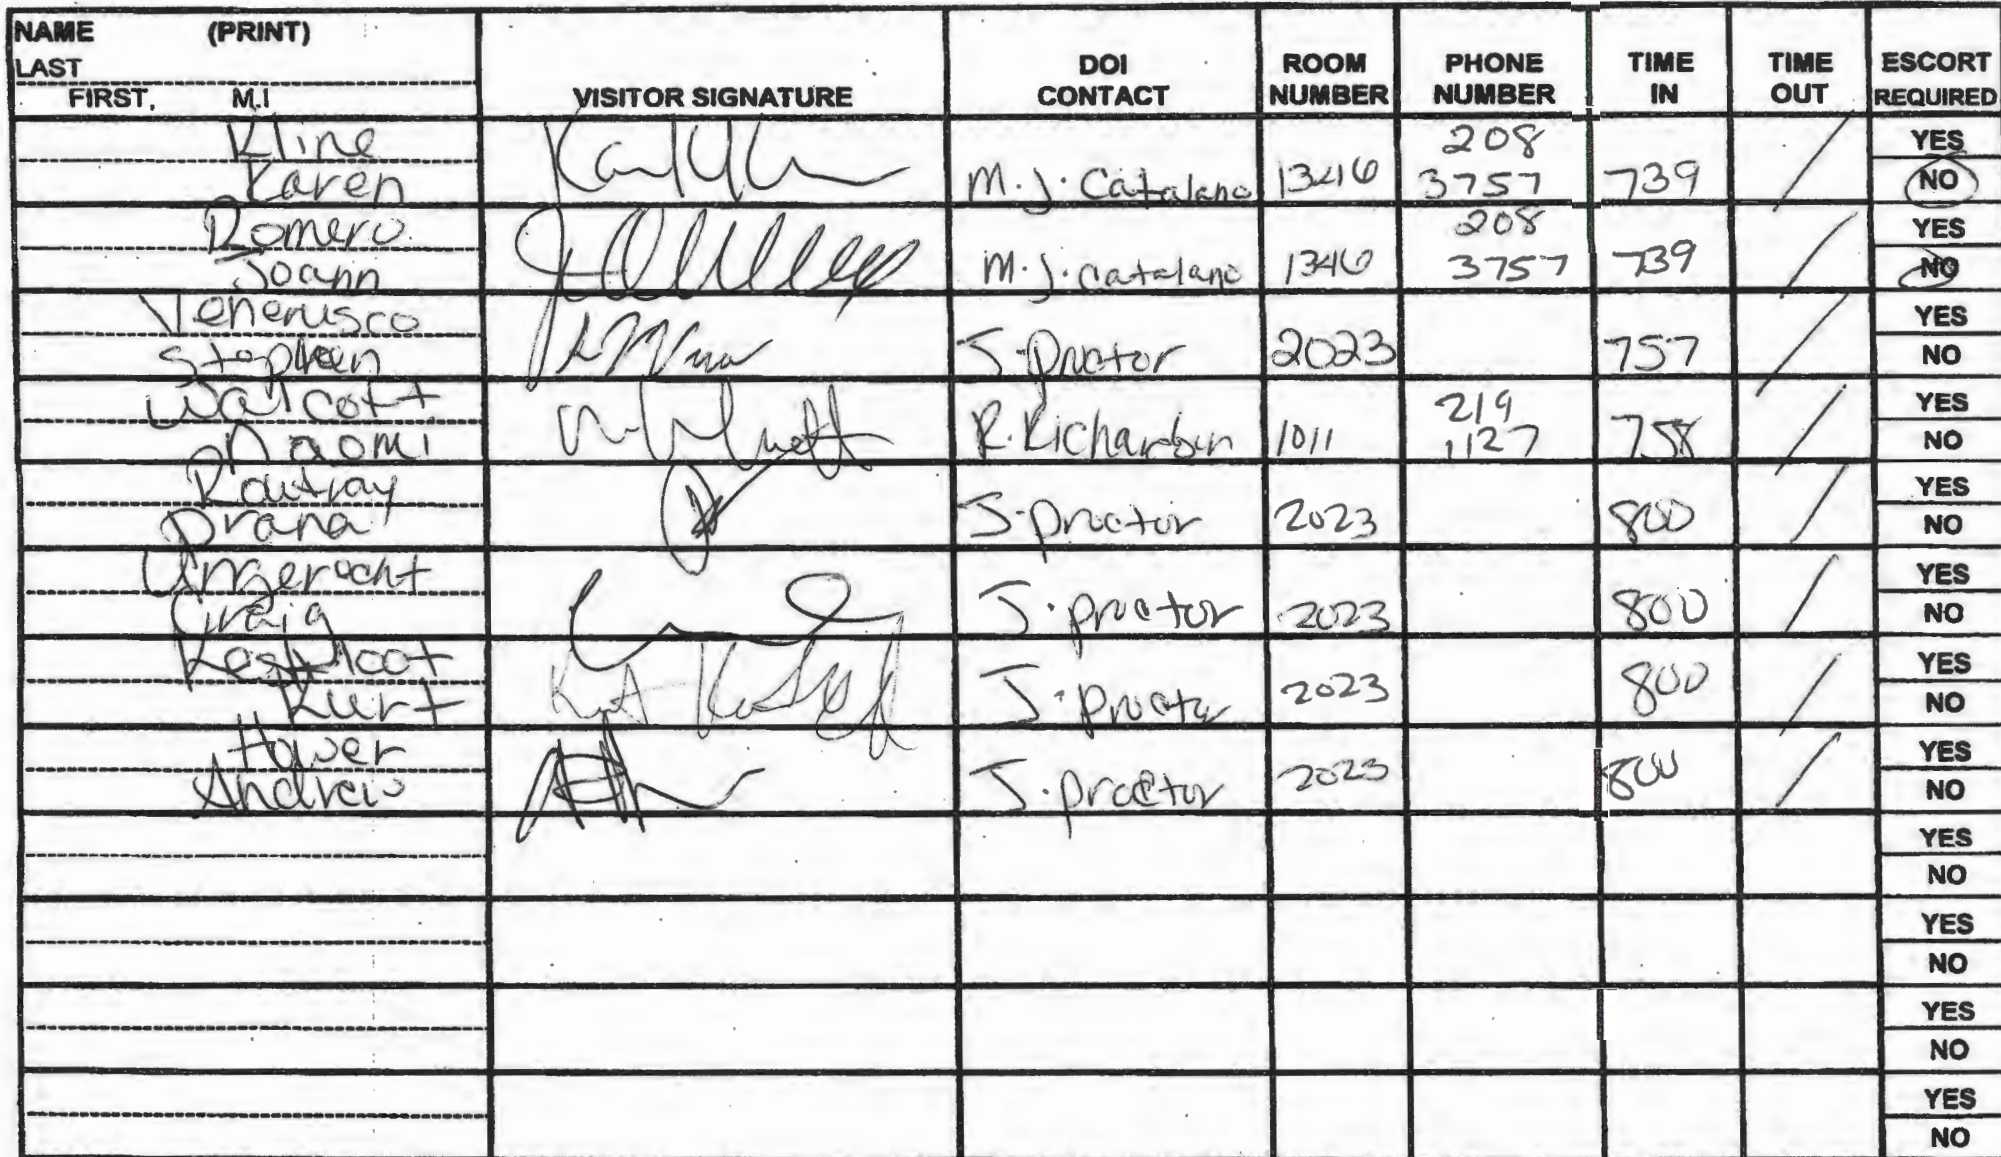 NAME (PRINT)
LAST
FIRST, M.I
VISITOR SIGNATURE
DOI CONTACT
ROOM NUMBER
PHONE NUMBER
TIME IN
TIME OUT
ESCORT REQUIRED
Kline
Karen
M.J. Catalano 1346 208 3757 739 / YES NO
Romero
Joann
M.J. Catalano 1346 208 3757 739 / YES NO
Venerusco
Stephen
J. Proctor 2023 757 / YES NO
Walcott
Naomi
R. Richardson 1011 219 1127 758 / YES NO
Routray
J. Proctor 2023 800 / YES NO
Craig
J. Proctor 2023 800 / YES NO
Kurt
J. Proctor 2023 800 / YES NO
Hower
Andrew
J. Proctor 2023 800 / YES NO
YES
NO
YES
NO
YES
NO
YES
NO